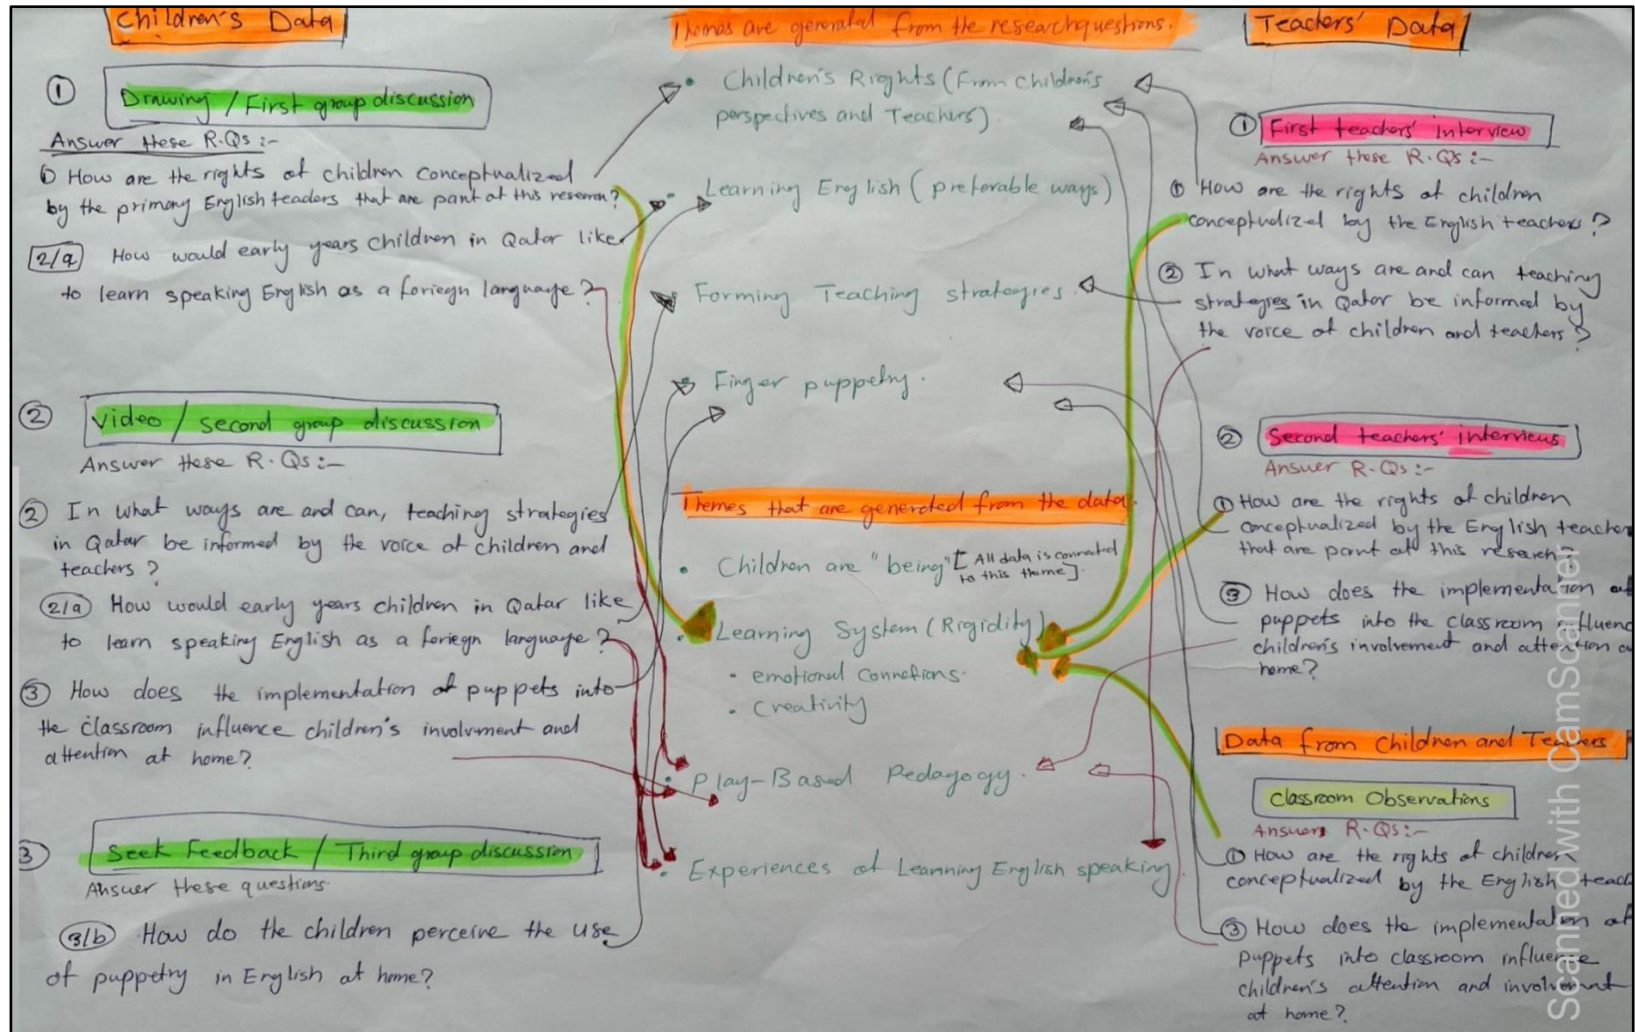 Children's Data
① Drawing / First group discussion
Answer these R.Qs :-
① How are the rights of children conceptualized
by the primary English teachers that are part of this research?
2/a How would early years children in Qatar like
to learn speaking English as a foriegn language?
② Video / second group discussion
Answer these R.Qs :-
② In what ways are and can, teaching strategies
in Qatar be informed by the voice of children and
teachers ?
2/a How would early years children in Qatar like
to learn speaking English as a foriegn language?
③ How does the implementation of puppets into
the classroom influence children's involvment and
attention at home?
3 Seek Feedback / Third group discussion
Answer these questions
3/b How do the children perceive the use
of puppetry in English at home?
Themes are generated from the research questions.
• Children's Rights (From children's
perspectives and Teachers).
• Learning English (preferable ways)
• Forming Teaching strategies
• Finger puppetry.
Themes that are generated from the data.
• Children are "being" [All data is connected
to this theme].
• Learning System (Rigidity)
• emotional Connetions.
• Creativity
• Play-Based Pedagogy.
• Experiences of Learning English speaking
Teachers' Data
① First teachers' interview
Answer these R.Qs :-
① How are the rights of children
conceptualized by the English teachers ?
② In what ways are and can teaching
strategies in Qatar be informed by
the voice of children and teachers ?
② Second teachers' interviews
Answer R.Qs :-
① How are the rights of children
conceptualized by the English teacher
that are part of this research?
③ How does the implementation of
puppets into the classroom influenc
children's involvement and attention a
home?
Data from Children and Teachers
Classroom Observations
Answers R.Qs :-
① How are the rights of children
conceptualized by the English teach
③ How does the implementation of
puppets into classroom influence
children's attention and involvment
at home?
Scanned with CamScanner